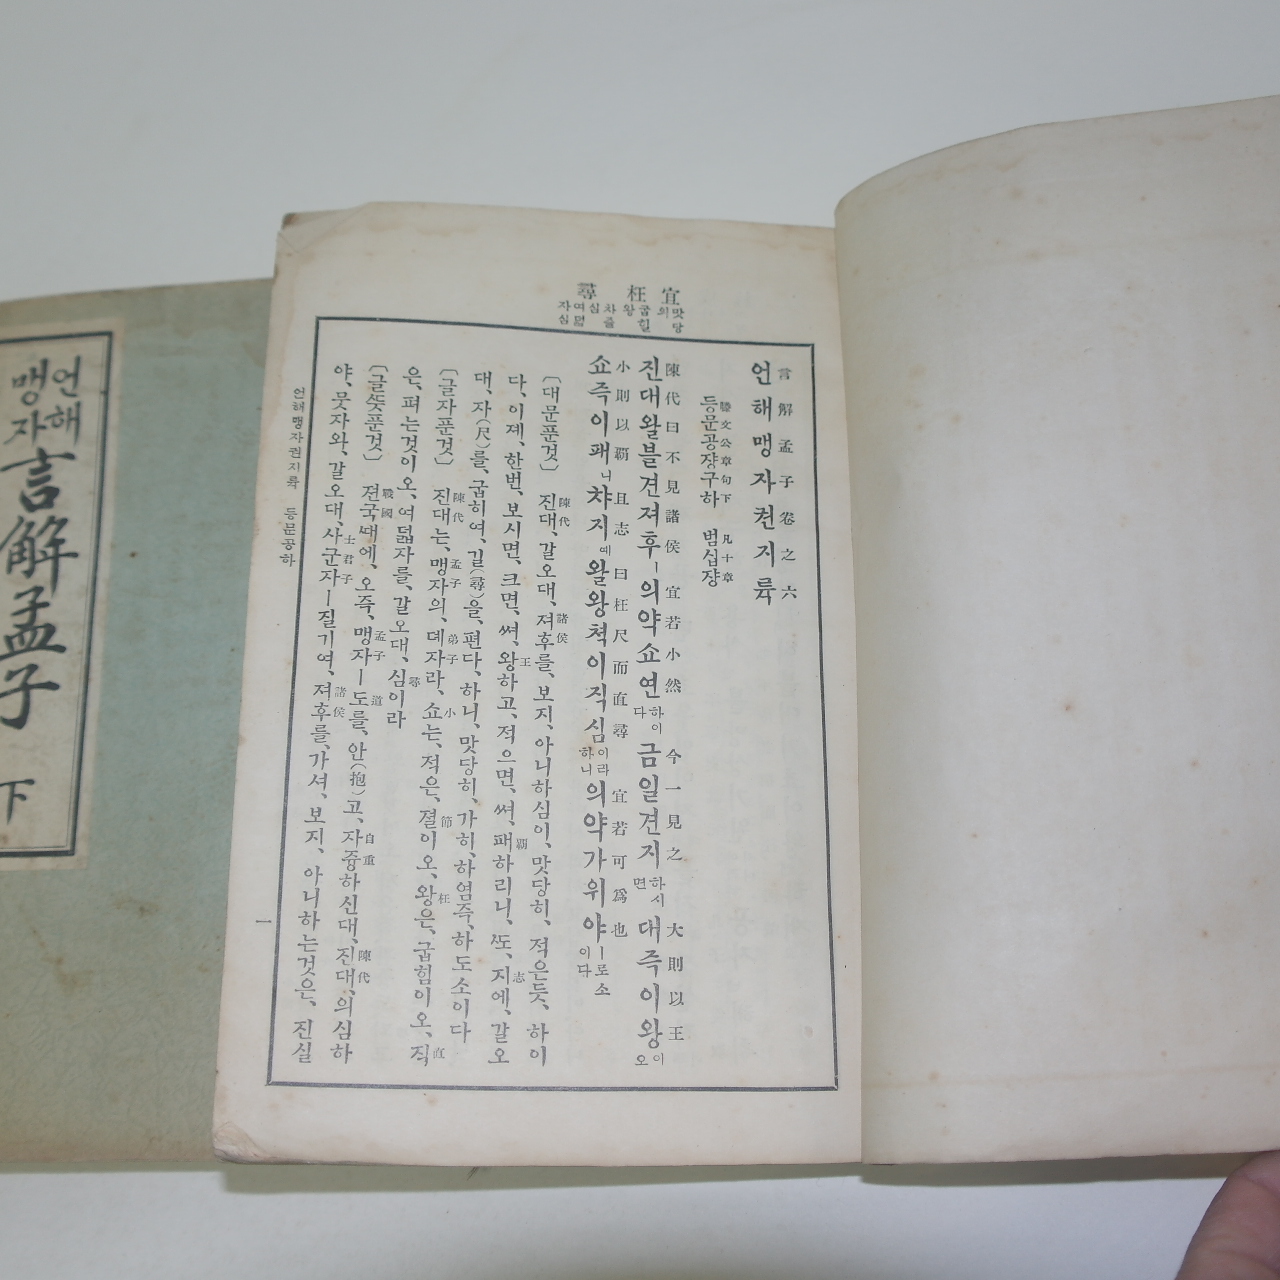 宜 枉 尋
맛당 의 굽힐 왕 차즐 심 여덟 자 심
언해맹자권지륙
言解孟子卷之六
등문공쟝구하 범십쟝
滕文公章句下 凡十章
진대왈블견져후ㅣ의약쇼연하이다금일견지하시면대즉이왕이오
陳代曰不見諸侯宜若小然今一見之大則以王
쇼즉이패니챠지예왈왕쳑이직심이라하니의약가위야ㅣ로소이다
小則以覇且志曰枉尺而直尋宜若可爲也
(대문푼것) 진대、갈오대、져후를、보지、아니하심이、맛당히、적은듯、하이
陳代 諸侯
다、이졔、한번、보시면、크면、써、왕하고、적으면、써、패하리니、ᄯᅩ、지에、갈오
王 覇 志
대、자(尺)를、굽히여、길(尋)을、편다、하니、맛당히、가히、하염즉、하도소이다
(글자푼것) 진대는、맹자의、뎨자라、쇼는、적은、졀이오、왕은、굽힘이오、직
陳代 孟子 弟子 小 節 枉 直
은、펴는것이오、여덟자를、갈오대、심이라
尋
(글ᄯᅳᆺ푼것) 젼국ᄯᅢ에、오즉、맹자ㅣ도를、안(抱)고、자즁하신대、진대、의심하
戰國 孟子 道 自重 陳代
야、뭇자와、갈오대、사군자ㅣ질기여、져후를、가셔、보지、아니하는것은、진실
士君子 諸侯
언해맹자권지륙 등문공하
一
언해
맹자
言解孟子 下